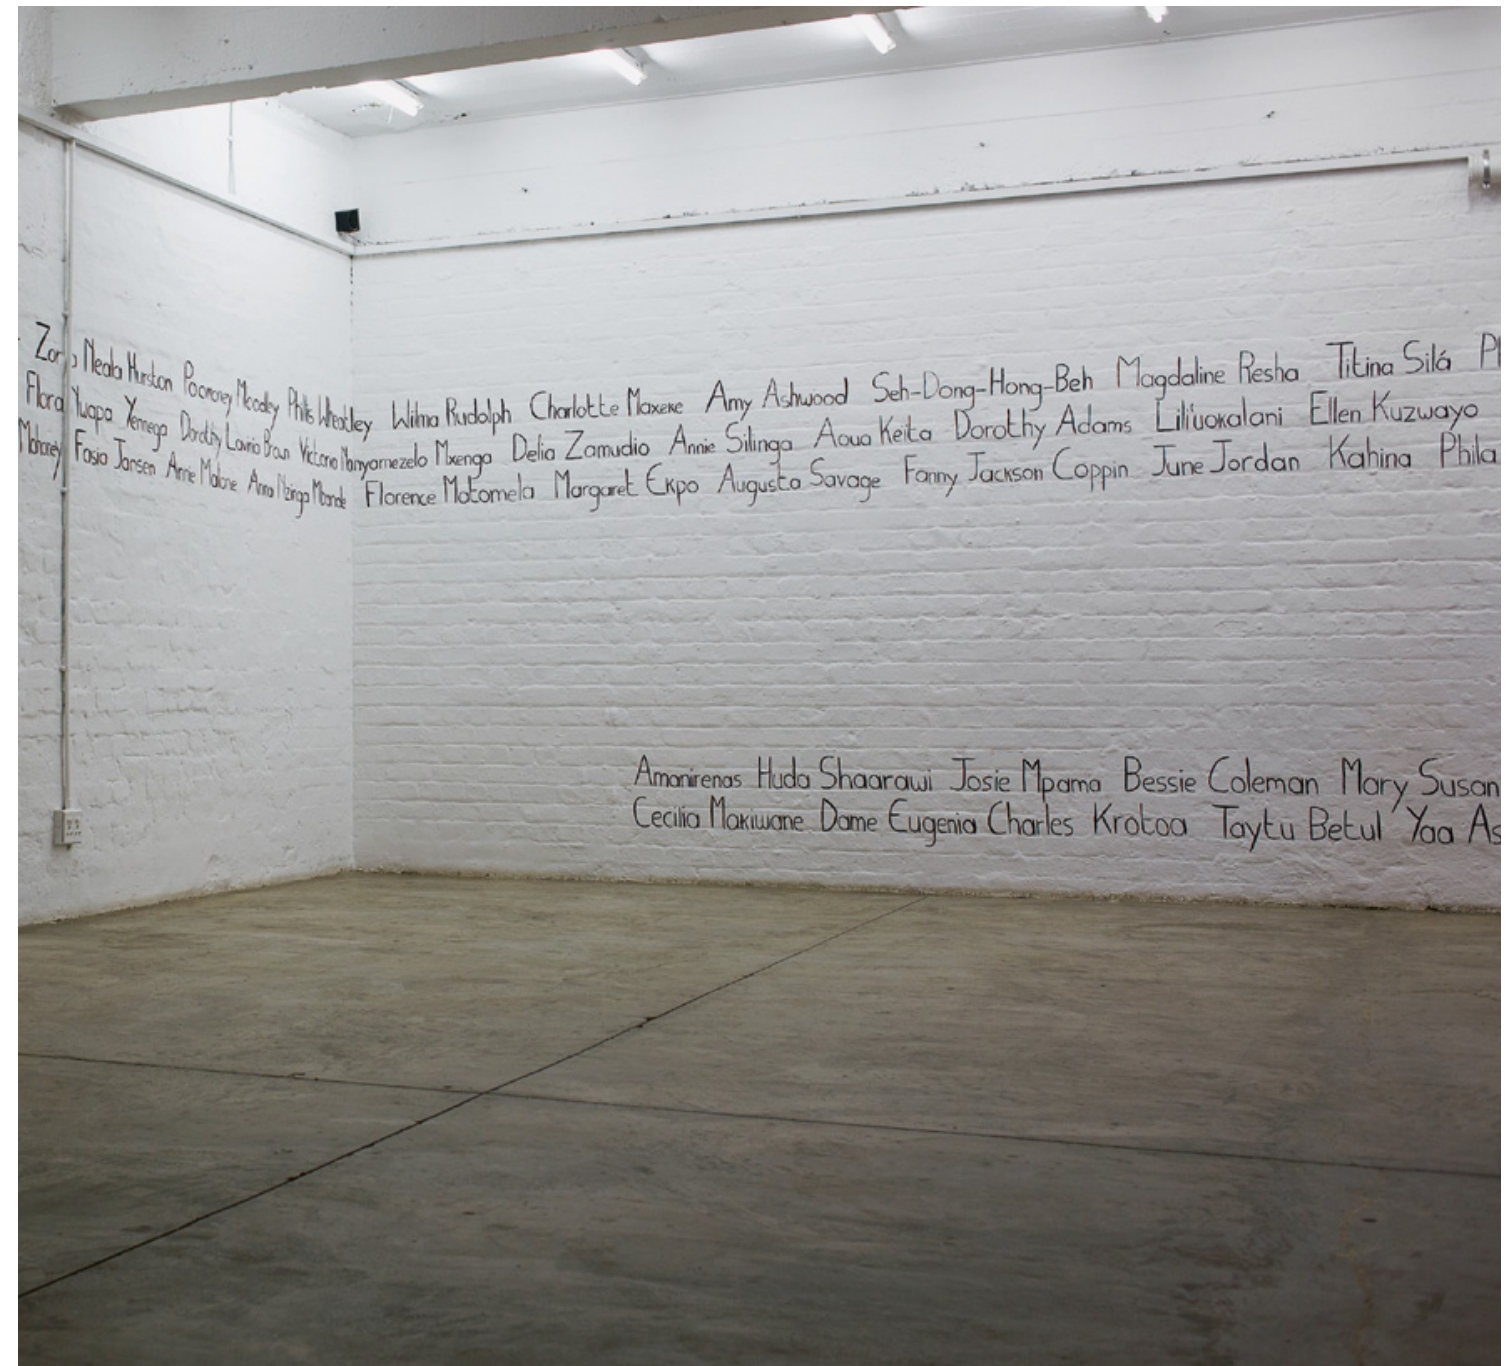 Zora Neala Hurston Poomoney Moodley Phillis Wheatley Wilma Rudolph Charlotte Maxeke Amy Ashwood Seh-Dong-Hong-Beh Magdaline Resha Titina Silá
Flora Yuapa Yennega Dorothy Lavinia Brown Victoria Nonyamezelo Mxenga Delia Zamudio Annie Silinga Aoua Keita Dorothy Adams Lili'uokalani Ellen Kuzwayo
Fasia Jansen Annie Malone Anna Nzinga Mbande Florence Matomela Margaret Ekpo Augusta Savage Fanny Jackson Coppin June Jordan Kahina Phila
Amanirenas Huda Shaarawi Josie Mpama Bessie Coleman Mary Susan
Cecilia Makiwane Dame Eugenia Charles Krotoa Taytu Betul Yaa As